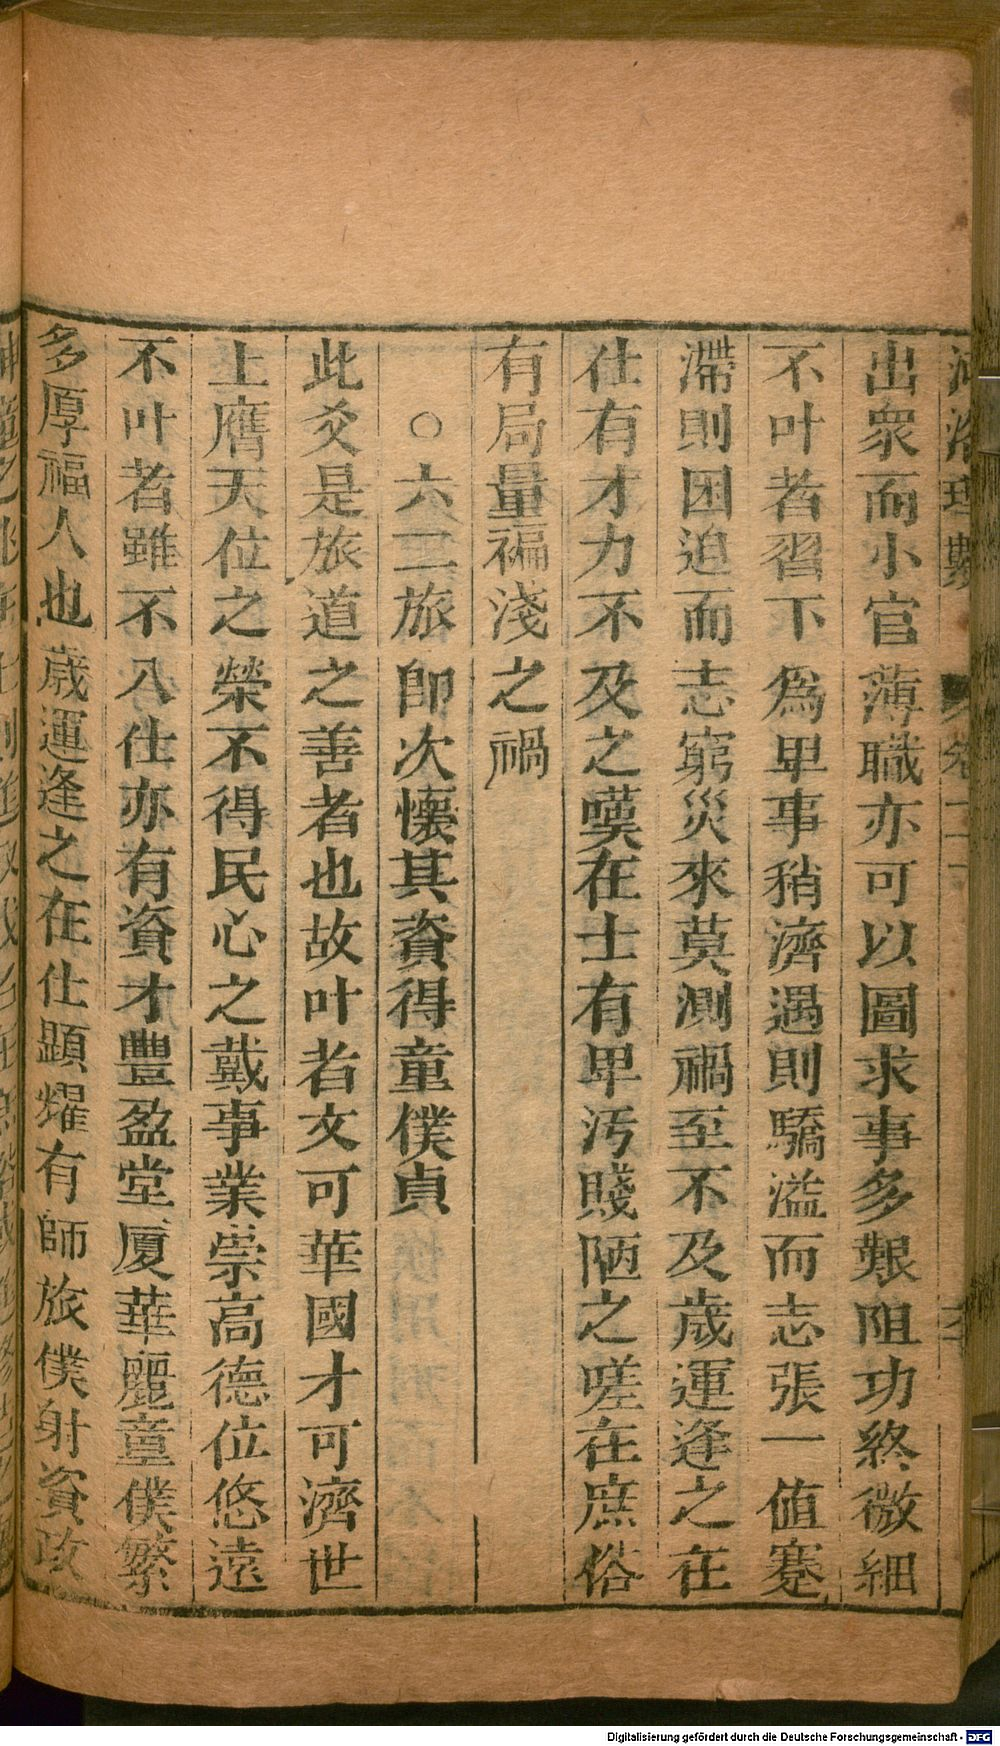 河洛理數
出衆而小官薄職亦可以圖求事多艱阻功終微細
不叶者習下爲卑事稍濟遇則驕溢而志張一値蹇
滯則困迫而志窮災來莫測禍至不及歲運逢之在
仕有才力不及之嘆在士有卑汚賤陋之嗟在庶俗
有局量褊淺之禍
○六二旅卽次懷其資得童僕貞
此爻是旅道之善者也故叶者文可華國才可濟世
上膺天位之榮不得民心之戴事業崇高德位悠遠
不叶者雖不入仕亦有資才豐盈堂厦華麗童僕繁
多厚福人也歲運逢之在仕顯耀有師旅僕射資政
Digitalisierung gefördert durch die Deutsche Forschungsgemeinschaft - DFG